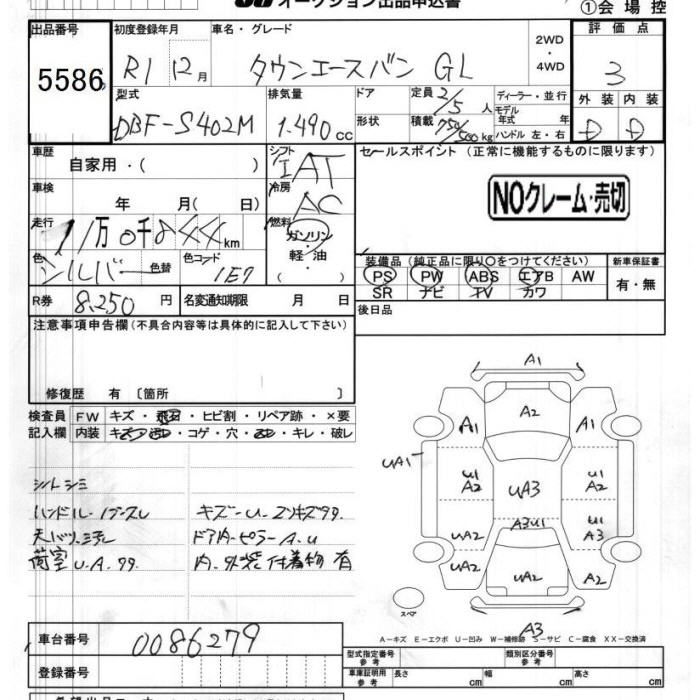 オークション出品申込書
①会場控
出品番号
5586
初度登録年月
R1 12月
車名・グレード
タウンエースバン GL
2WD
・
4WD
評価点
3
外装 内装
D D
型式
DBF-S402M
排気量
1.490cc
ドア
形状
定員 2/5人
積載 750/500kg
ディーラー・並行
モデル年式 年
ハンドル 左・右
車歴
自家用・( )
シフト
IAT
車検
年 月( 日)
冷房
AC
走行
11万0千844km
燃料
ガソリン
・
軽・油
( )
色
シルバー
色替
色コード
1E7
R券 8,250円
名変通知期限 月 日
セールスポイント (正常に機能するものに限ります)
NOクレーム・売切
装備品(純正品に限り○をつけてください)
PS PW ABS エアB AW
SR ナビ TV カワ
新車保証書
有・無
後日品
注意事項申告欄(不具合内容等は具体的に記入して下さい)
修復歴 有 〔箇所 〕
検査員記入欄
FW キズ・飛石・ヒビ割・リペア跡・×要
内装 キズ・汚れ・コゲ・穴・・キレ・破レ
シートシミ
ハンドル
天バリ
荷室U.A.99.
キズ-U.
ドア内・ピラーA.U
内.外装 付着物 有
A1
A2
A1
A1
UA1
U1
A2
UA3
U1
A2
A3U1
UA2
U1
A3
UA2
UA2
A2
スペア
A3
A-キズ E-エクボ U-凹み W-補修跡 S-サビ C-腐食 XX-交換済
車台番号
0086279
登録番号
型式指定番号
参考
類別区分番号
参考
車庫証明用
参考
長さ cm
幅 cm
高さ cm